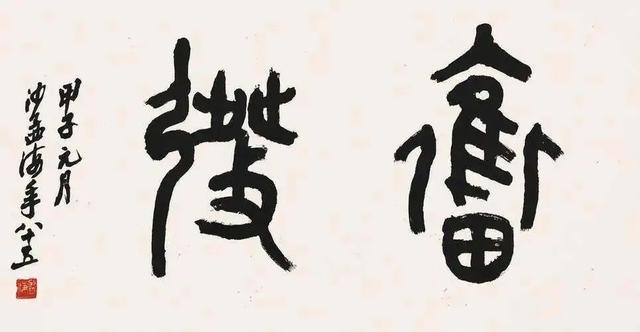 奮發
甲子元月
沙孟海年八十五